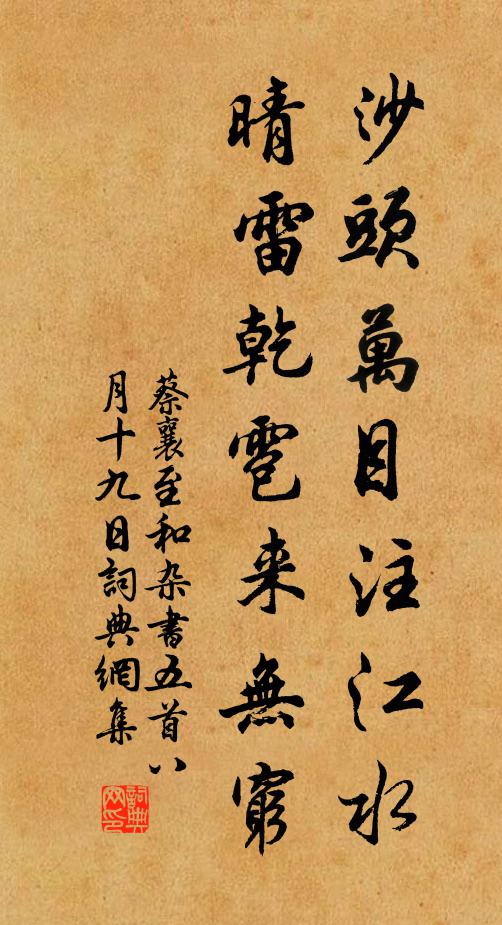 沙頭萬目注江水
晴雷乾雹来無窮
蔡襄至和杂書五首八
月十九日詞典網集
詞典网印